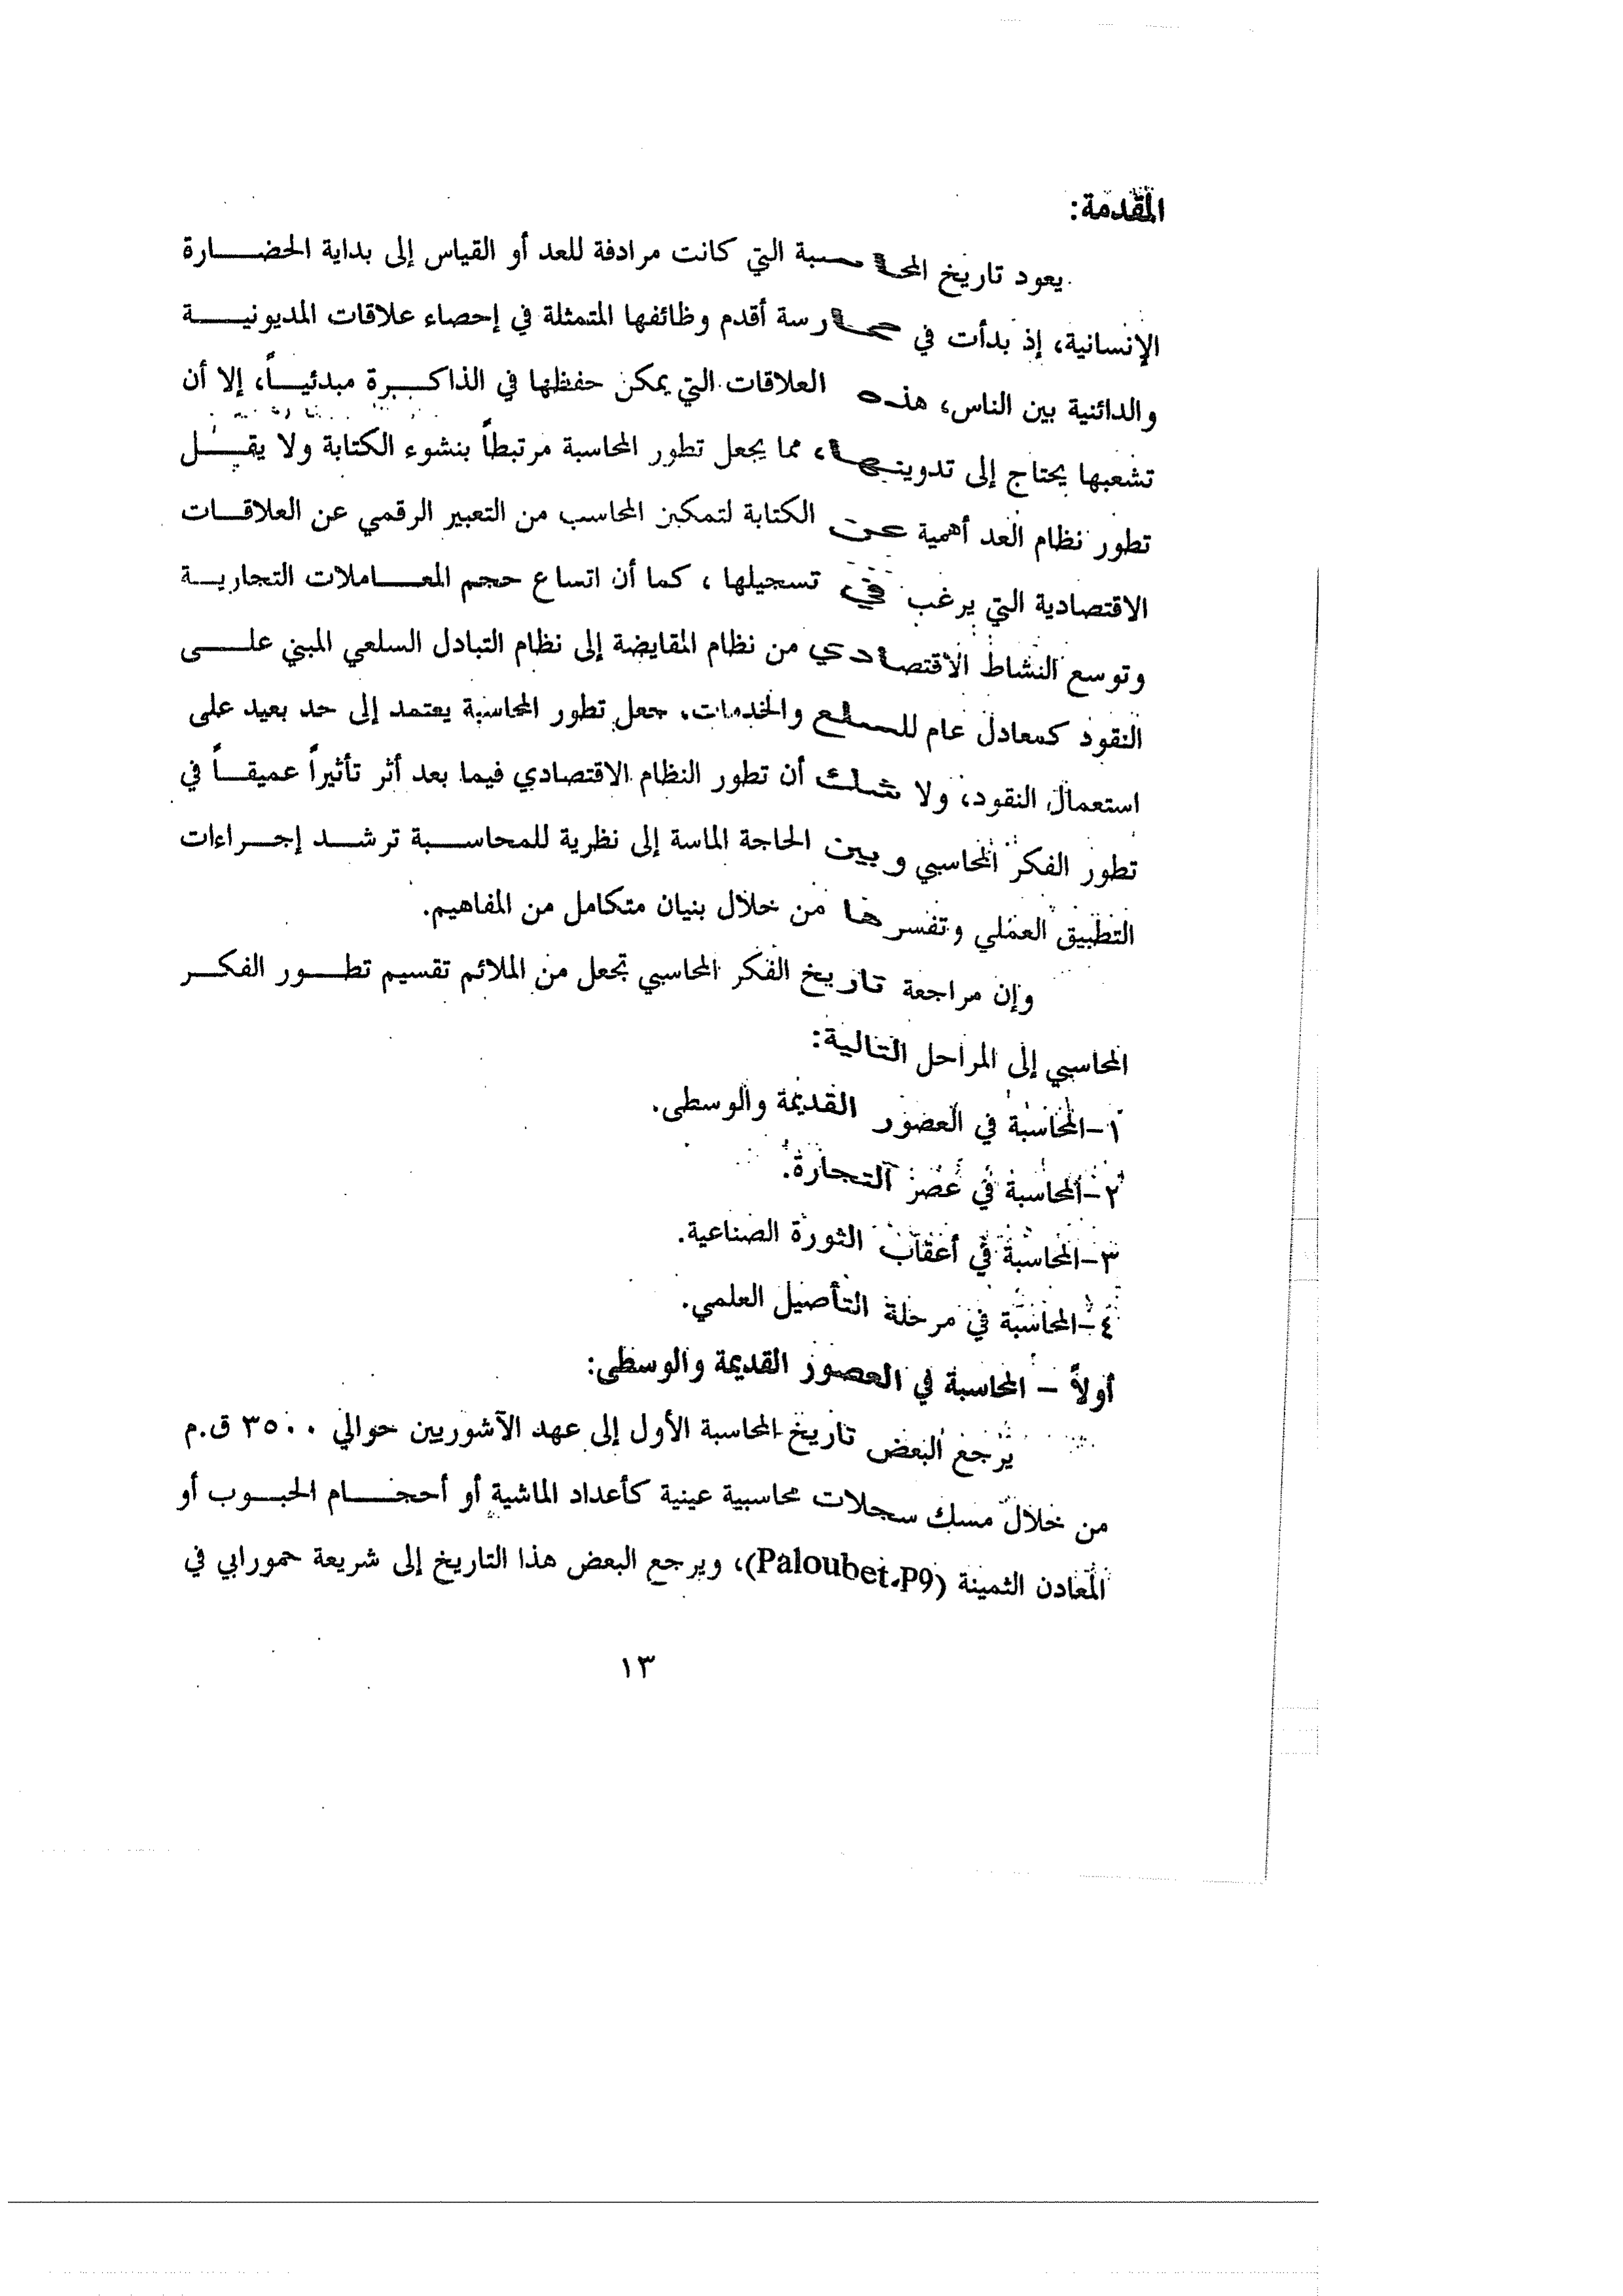 المقدمة:
يعود تاريخ المحاسبة التي كانت مرادفة للعد أو القياس إلى بداية الحضارة
الإنسانية، إذ بدأت في ممارسة أقدم وظائفها المتمثلة في إحصاء علاقات المديونية
والدائنية بين الناس، هذه العلاقات التي يمكن حفظها في الذاكرة مبدئياً، إلا أن
تشعبها يحتاج إلى تدوينها، مما يجعل تطور المحاسبة مرتبطاً بنشوء الكتابة ولا يقل
تطور نظام العد أهمية عن الكتابة لتمكين المحاسب من التعبير الرقمي عن العلاقات
الاقتصادية التي يرغب في تسجيلها ، كما أن اتساع حجم المعاملات التجارية
وتوسع النشاط الاقتصادي من نظام المقايضة إلى نظام التبادل السلعي المبني على
النقود كمعادل عام للسلع والخدمات. جعل تطور المحاسبة يعتمد إلى حد بعيد على
استعمال النقود، ولا شك أن تطور النظام الاقتصادي فيما بعد أثر تأثيراً عميقاً في
تطور الفكر المحاسبي وبين الحاجة الماسة إلى نظرية للمحاسبة ترشد إجراءات
التطبيق العملي وتفسرها من خلال بنيان متكامل من المفاهيم.
وإن مراجعة تاريخ الفكر المحاسبي تجعل من الملائم تقسيم تطور الفكر
المحاسبي إلى المراحل التالية:
١-المحاسبة في العصور القديمة والوسطى.
٢-المحاسبة في عصر التجارة.
٣-المحاسبة في أعقاب الثورة الصناعية.
٤-المحاسبة في مرحلة التأصيل العلمي.
أولاً – المحاسبة في العصور القديمة والوسطى:
يرجع البعض تاريخ المحاسبة الأول إلى عهد الآشوريين حوالي ٣٥٠٠ ق.م
من خلال مسك سجلات محاسبية عينية كأعداد الماشية أو أحجام الحبوب أو
المعادن الثمينة (Paloubet.P9)، ويرجع البعض هذا التاريخ إلى شريعة حمورابي في
١٣